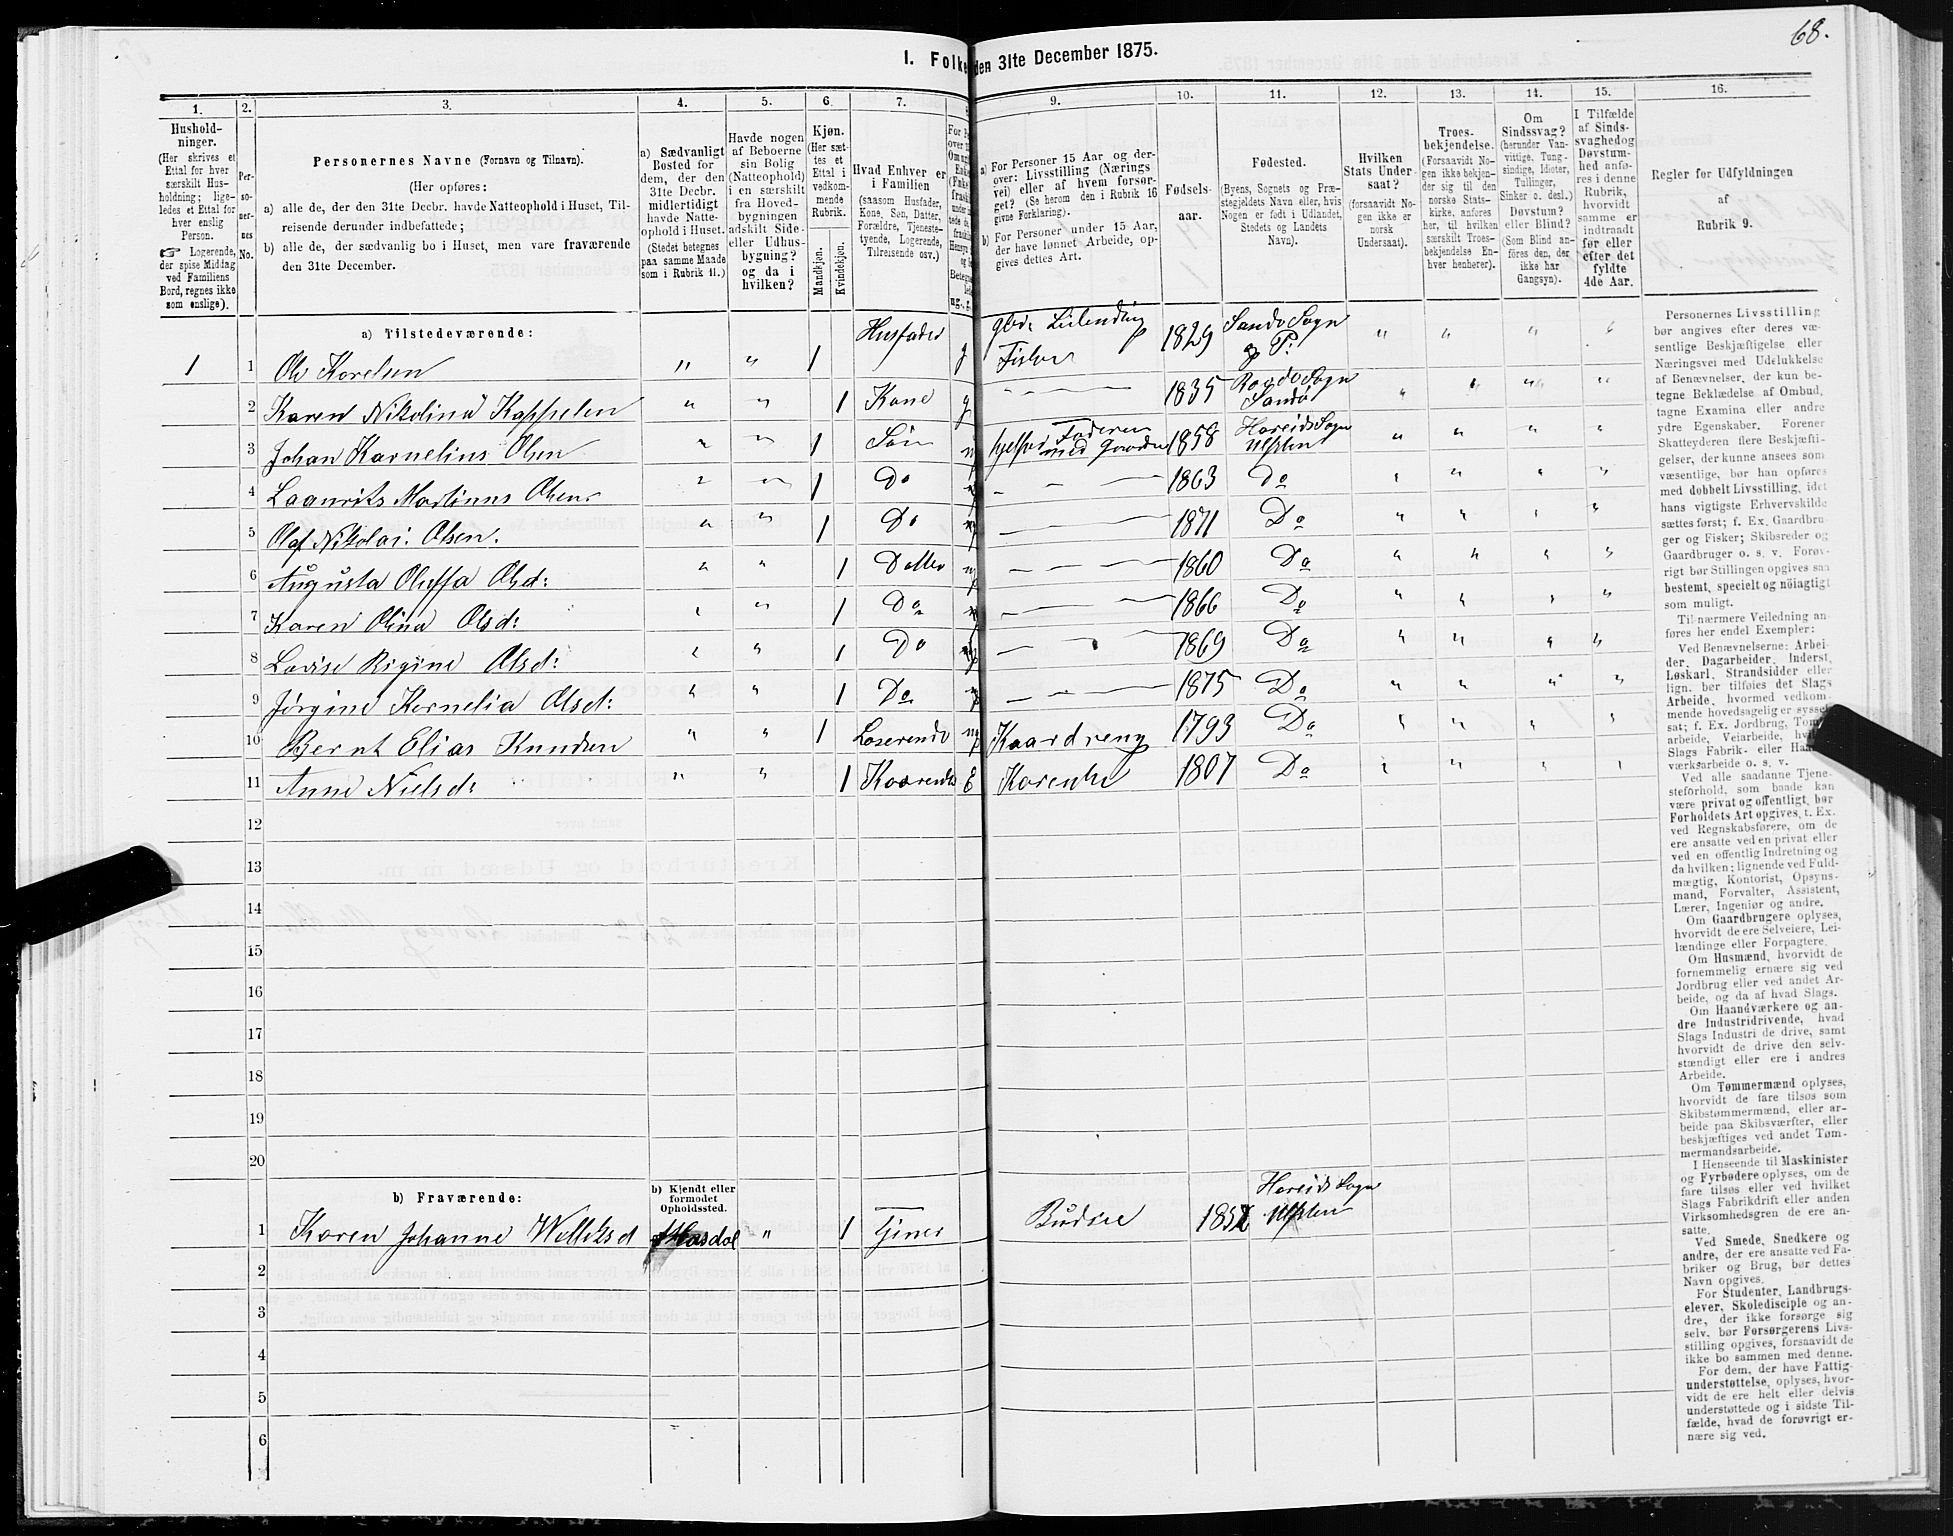 68.
I. Folke
den 31te December 1875.
1.
2.
3.
4.
5.
6.
7.
9.
10.
11.
12.
13.
14.
15.
16.
Hushold-
ninger.
(Her skrives et
Ettal for hver
særskilt Hus-
holdning; lige-
ledes et Ettal for
hver enslig
Person.
☞ Logerende,
der spise Middag
ved Familiens
Bord, regnes ikke
som enslige).
Per-
so-
ner-
nes
No.
Personernes Navne (Fornavn og Tilnavn).
(Her opføres:
a) alle de, der den 31te Decbr. havde Natteophold i Huset, Til-
reisende derunder indbefattede;
b) alle de, der sædvanlig bo i Huset, men vare fraværende
den 31te December.
a) Sædvanligt
Bosted for
dem, der den
31te Decbr.
midlertidigt
havde Natte-
ophold i Huset.
(Stedet betegnes
paa samme Maade
som i Rubrik 11.)
Havde nogen
af Beboerne
sin Bolig
(Natteophold)
i en særskilt
fra Hoved-
bygningen
adskilt Side-
eller Udhus-
bygning?
og da i
hvilken?
Kjøn.
(Her sæt-
tes et
Ettal i
vedkom-
mende
Rubrik.
Mandkjøn.
Kvindekjøn.
Hvad Enhver er
i Familien
(saasom Husfader,
Kone, Søn, Datter,
Forældre, Tjeneste-
tyende, Logerende,
Tilreisende osv.)
ug.
a) For Personer 15 Aar og der-
over: Livsstilling (Nærings-
vei) eller af hvem forsør-
get? (Se herom den i Rubrik 16
givne Forklaring).
b) For Personer under 15 Aar,
der have lønnet Arbeide, op-
gives dettes Art.
Fødsels-
aar.
Fødested.
(Byens, Sognets og Præ-
stegjeldets Navn eller, hvis
Nogen er født i Udlandet,
Stedets og Landets
Navn).
Hvilken
Stats Under-
saat?
(forsaavidt No-
gen ikke er
norsk
Undersaat).
Troes-
bekjendelse.
(Forsaavidt No-
gen ikke bekjen-
der sig til den
norske Stats-
kirke, anføres
her, til hvilken
særskilt Troes-
bekjendelse En-
hver henhører).
Om
Sindssvag?
(herunder Van-
vittige, Tung-
sindige, Idioter,
Tullinger,
Sinker o. desl.)
Døvstum?
eller Blind?
(Som Blind an-
føres den, der
ikke har
Gangsyn).
I Tilfælde
af Sinds-
svaghed og
Døvstum-
hed anfø-
res i denne
Rubrik,
hvorvidt
samme er
indtraadt
før eller
efter det
fyldte
4de Aar.
Regler for Udfyldningen
af
Rubrik 9.
a) Tilstedeværende:
1 1 Ole Korelsen " " 1 Husfader g Fisker 1829 Sandø Sogn " " " "
og P:
2 Karen Nikolina Kappelen " " 1 Kone g 1835 Sogn " " " "
Sandø
3 Johan Kornelius Olsen " " 1 Søn hjelper Faderen med Gaarden 1858 Hareids Sogn " " " "
Ulsten
4 Laurits Martinus Olsen " " 1 Do 1863 Do " " " "
5 Olaf Nikolai Olsen. " " 1 Do 1871 Do " " " "
6 Augusta Oluffa Olsd: " " 1 Datter 1860 Do " " " "
7 Karen Olina Olsd: " " 1 Do 1866 Do " " " "
8 Lovise Rigine Olsd: " " 1 Do 1869 Do " " " "
9 Jørgine Kornelia Olsd: " " 1 Do 1875 Do " " " "
10 Bernt Elias Knudsen " " 1 Loserende Kaardreng 1793 Do " " " "
11 Anne Nielsd: " " 1 E Karenke 1807 Do " " " "
12
13
14
15
16
17
18
19
20
b) Fraværende:
b) Kjendt eller
formodet
Opholdssted.
1 Karen Johanne Hasdal " 1 Tjener Budeie Hareids Sogn
Ulsten
2
3
4
5
6
Personernes Livsstilling
bør angives efter deres væ-
sentlige Beskjæftigelse eller
Næringsvei med Udelukkelse
af Benævnelser, der kun be-
tegne Beklædelse af Ombud,
tagne Examina eller andre
ydre Egenskaber. Forener
Skatteyderen flere Beskjæfti-
gelser, der kunne ansees som
væsentlige, bør han opføres
med dobbelt Livsstilling, idet
hans vigtigste Erhvervskilde
sættes først; f. Ex. Gaardbru-
ger og Fisker; Skibsreder og
Gaardbruger o. s. v. Forøv-
rigt bør Stillingen opgives saa
bestemt, specielt og nöiagtigt
som muligt.
Til nærmere Veiledning an-
føres her endel Exempler:
Ved Benævnelserne: Arbei-
der, Dagarbeider, Inderst,
Løskarl, Strandsidder eller
lign. bør tilføies det Slags
Arbeide, hvormed vedkom-
mende hovedsagelig er syssel-
sat; f. Ex. Jordbrug, Tom
arbeide, Veiarbeide, hvil
Slags Fabrik- eller Haa
værksarbeide o. s. v.
Ved alle saadanne Tjene-
steforhold, som baade kan
være privat og offentligt, bør
Forholdets Art opgives, t. Ex.
ved Regnskabsførere, om de
ere ansatte ved en privat eller
ved en offentlig Indretning og
da hvilken; lignende ved Fuld-
mægtig, Kontorist, Opsyns-
mand, Forvalter, Assistent,
Lærer, Ingeniør og andre.
Om Gaardbrugere oplyses,
hvorvidt de ere Selveiere, Lei-
lændinge eller Forpagtere.
Om Husmænd, hvorvidt de
fornemmelig ernære sig ved
Jordbrug eller ved andet Ar-
beide, og da af hvad Slags.
Om Haandværkere og an-
dre Industridrivende, hvad
Slags Industri de drive, samt
hvorvidt de drive den selv-
stændigt eller ere i andres
Arbeide.
Om Tømmermænd oplyses,
hvorvidt de fare tilsøs som
Skibstømmermænd, eller ar-
beide paa Skibsværfter, eller
beskjæftiges ved andet Tøm-
mermandsarbeide.
I Henseende til Maskinister
og Fyrbødere oplyses, om de
fare tilsøs eller ved hvilket
Slags Fabrikdrift eller anden
Virksomhedsgren de ere an-
satte.
Ved Smede, Snedkere og
andre, der ere ansatte ved Fa-
briker og Brug, bør dettes
Navn opgives.
For Studenter, Landbrugs-
elever, Skoledisciple og an-
dre, der ikke forsørge sig
selv, bør Forsørgerens Livs-
stilling opgives, forsaavidt de
ikke bo sammen med denne.
For dem, der have Fattig-
understøttelse, oplyses, hvor-
vidt de ere helt eller delvis
understøttede og i sidste Til-
fælde, hvad de forøvrigt er-
nære sig ved.